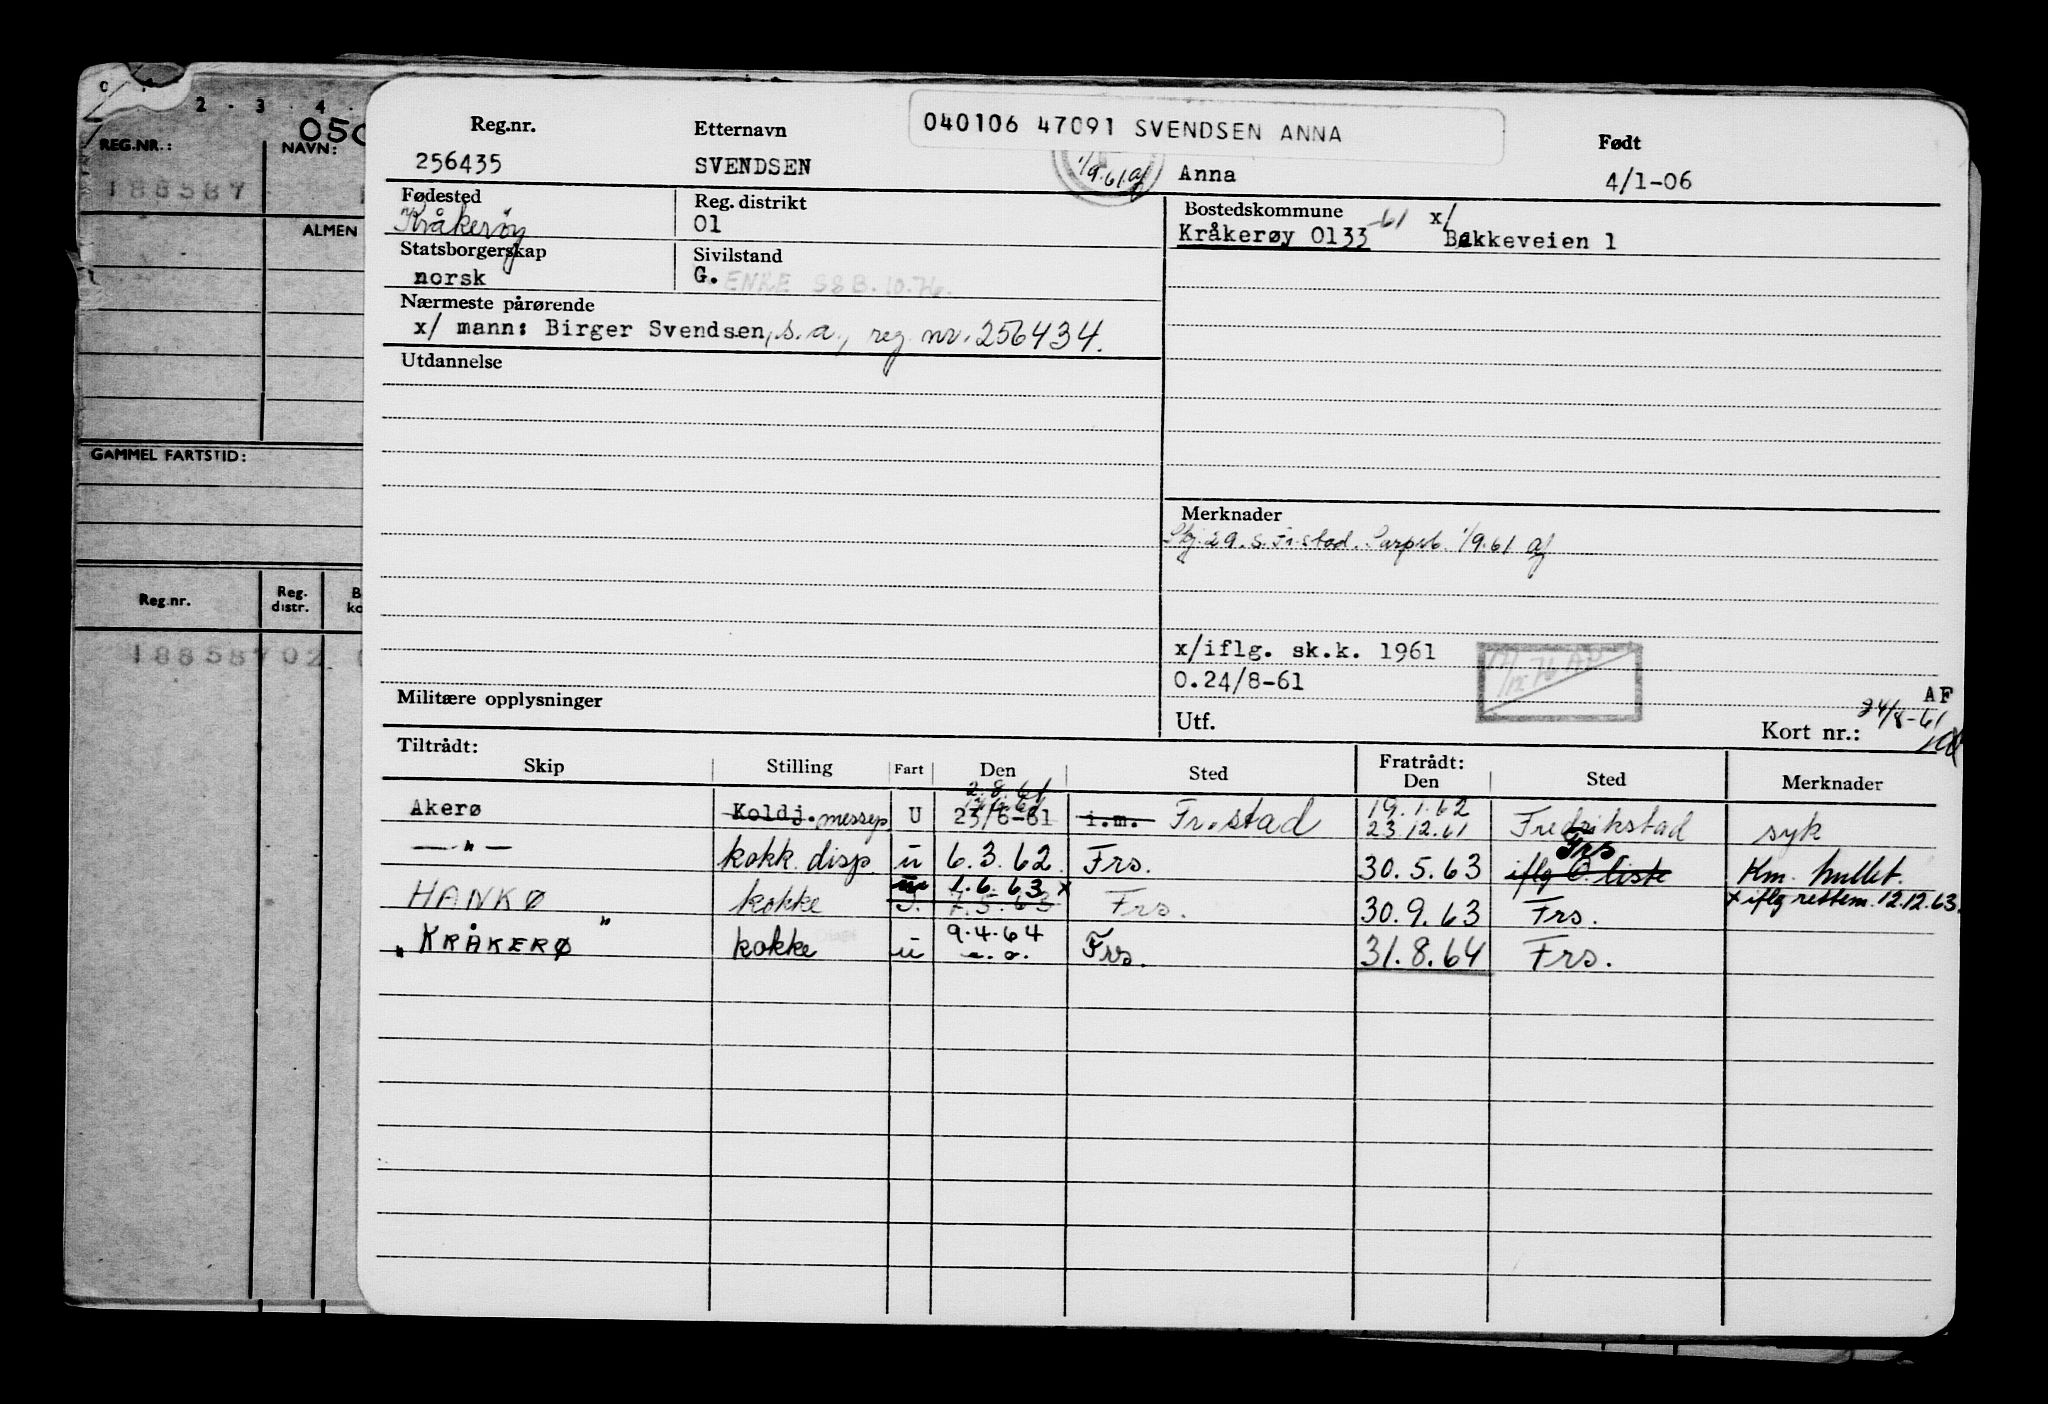 2 · 3 · 4 ·
REG.NR.:
NAVN:
188587
ALMEN
GAMMEL FARTSTID:
Reg.nr.
Reg. distr.
188587 02
040106 47091 SVENDSEN ANNA
Reg.nr.
Etternavn
Født
256435
SVENDSEN
1/9.61 af
Anna
4/1-06
Fødested
Kråkerøy
Reg. distrikt
01
Bostedskommune
Kråkerøy 0133 -61
x/ Bakkeveien 1
Statsborgerskap
norsk
Sivilstand
G. ENKE SSB.10.76.
Nærmeste pårørende
x/ mann: Birger Svendsen, s.a., reg nr. 256434.
Utdannelse
Merknader
Skj. 29. S. Fr.stad. Sarpsb. 1/9.61 af
x/iflg. sk.k. 1961
0.24/8-61
Militære opplysninger
Utf.
AF
24/8-61
Kort nr.:
Tiltrådt:
Fratrådt:
Skip
Stilling
Fart
Den
Sted
Den
Sted
Merknader
2.8.61
19.1.62
Akerø
Koldj. messep.
U
23/6-61
i.m. Fr.stad
23.12.61
Fredrikstad
syk
— " —
kokk disp.
u
6.3.62
Frs.
30.5.63
iflg O. liste
Frs
Km. hullet.
u
1.6.63 x
HANKØ
kokke
Frs.
30.9.63
Frs.
x iflg restem. 12.12.63.
9.4.64
" KRÅKERØ "
kokke
u
Frs.
31.8.64
Frs.